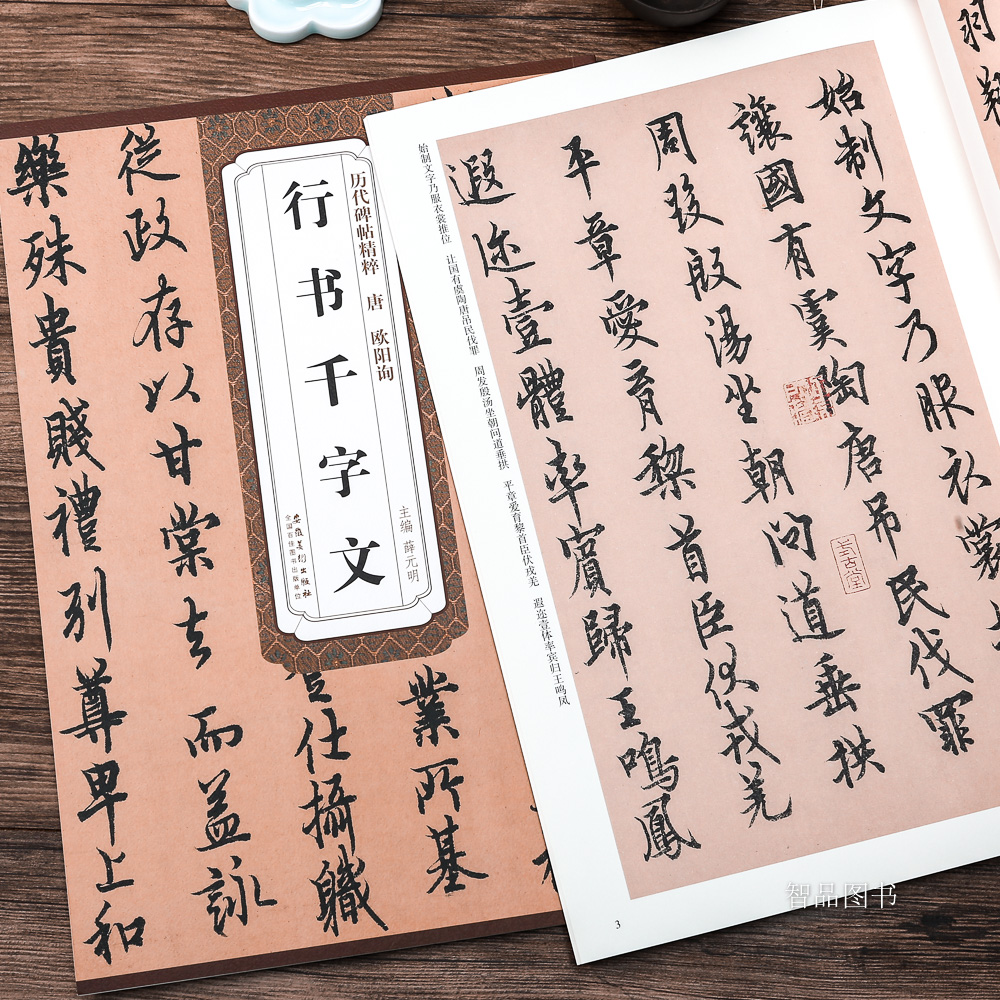 历代碑帖精粹 唐 欧阳询
行书千字文
主编 薛元明
安徽美术出版社
全国百佳图书出版单位
業所基
仕攝職
從政存以甘棠去而益詠
樂殊貴賤禮別尊卑上和
羽翔
始制文字乃服衣裳
讓國有虞陶唐吊民伐罪
周發殷湯坐朝問道垂拱
平章愛育黎首臣伏戎羌
遐迩壹體率賓歸王鳴鳳
始制文字乃服衣裳推位 让国有虞陶唐吊民伐罪 周发殷汤坐朝问道垂拱 平章爱育黎首臣伏戎羌 遐迩壹体率宾归王鸣凤
3
智品图书